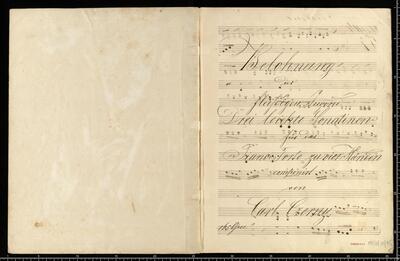 Belohnung
der
fleissigen Jugend
Drei leichte Sonatinen
für das
Piano-Forte zu vier Händen
componirt
von
Carl Czerny